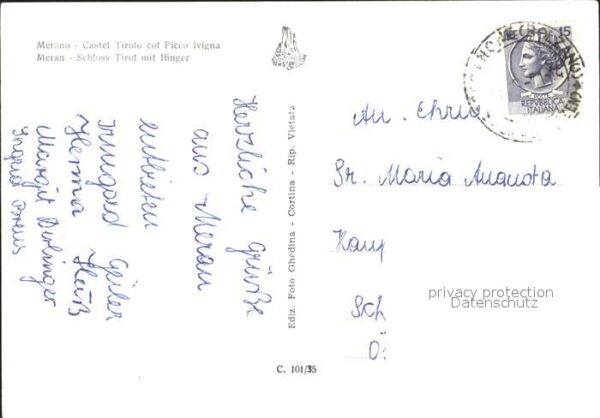 Merano - Castel Tirolo col Picco Ivigna
Meran - Schloss Tirol mit Ifinger
Herzliche Grüße
aus Meran
entbieten
Irmgard Geiler
Herma
Margit
Ingrid
Ediz. Foto Ghedina - Cortina - Rip. Vietata
C. 101/35
15
REPVBBLICA
ITALIANA
An Ehrw.
Sr. Maria Augusta
privacy protection
Datenschutz
Sch
Ö